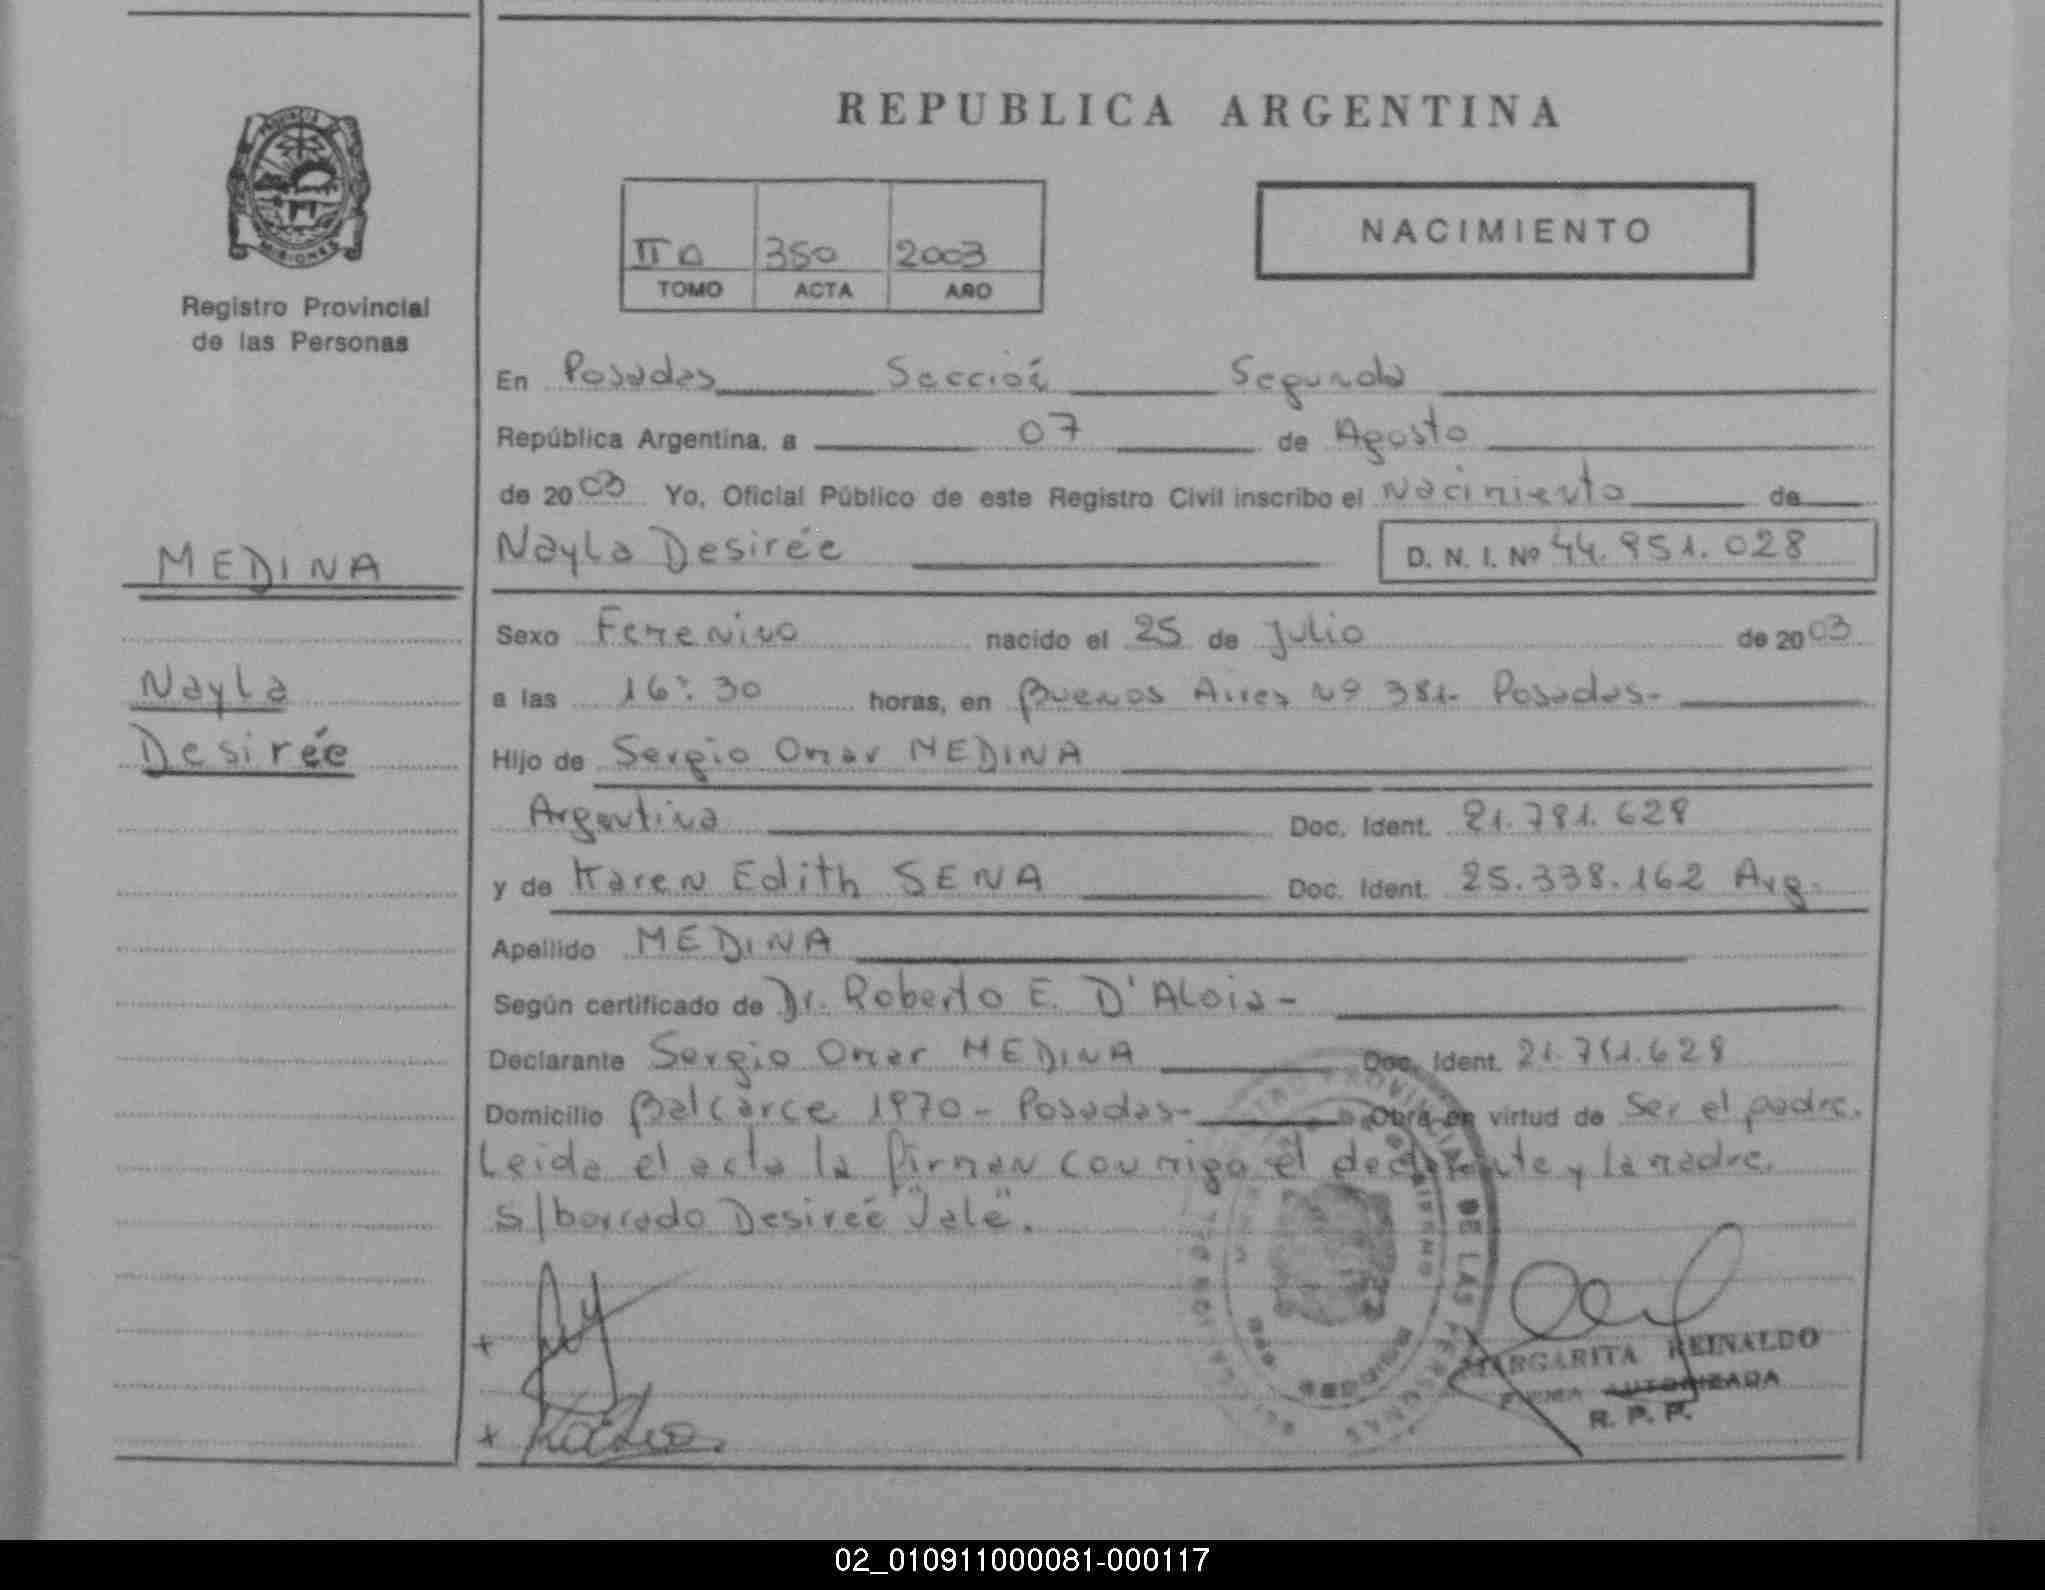 REPUBLICA ARGENTINA
PROVINCIA
MISIONES
Registro Provincial
de las Personas
II D 350 2003
TOMO ACTA AÑO
NACIMIENTO
En Posadas Sección Segunda
República Argentina, a 07 de Agosto
de 2003 Yo, Oficial Público de este Registro Civil inscribo el Nacimiento de
MEDINA
Nayla Desirée D. N. I. Nº 44.951.028
Sexo Femenino nacido el 25 de Julio de 2003
Nayla
a las 16:30 horas, en Buenos Aires Nº 381- Posadas-
Desirée
Hijo de Sergio Omar MEDINA
Argentina Doc. Ident. 21.781.628
y de Karen Edith SENA Doc. Ident. 25.338.162 Arg.
Apellido MEDINA
Según certificado de Dr. Roberto E. D'Alois-
Declarante Sergio Omar MEDINA Doc. Ident. 21.781.628
Domicilio Balcarce 1970- Posadas- Obra en virtud de Ser el padre.
Leida el acta la firman conmigo el declarante y la madre.
s/borrado Desireé "Vale".
DE LAS PERSONAS
MARGARITA REINALDO
FIRMA AUTORIZADA
R. P. P.
02_010911000081-000117